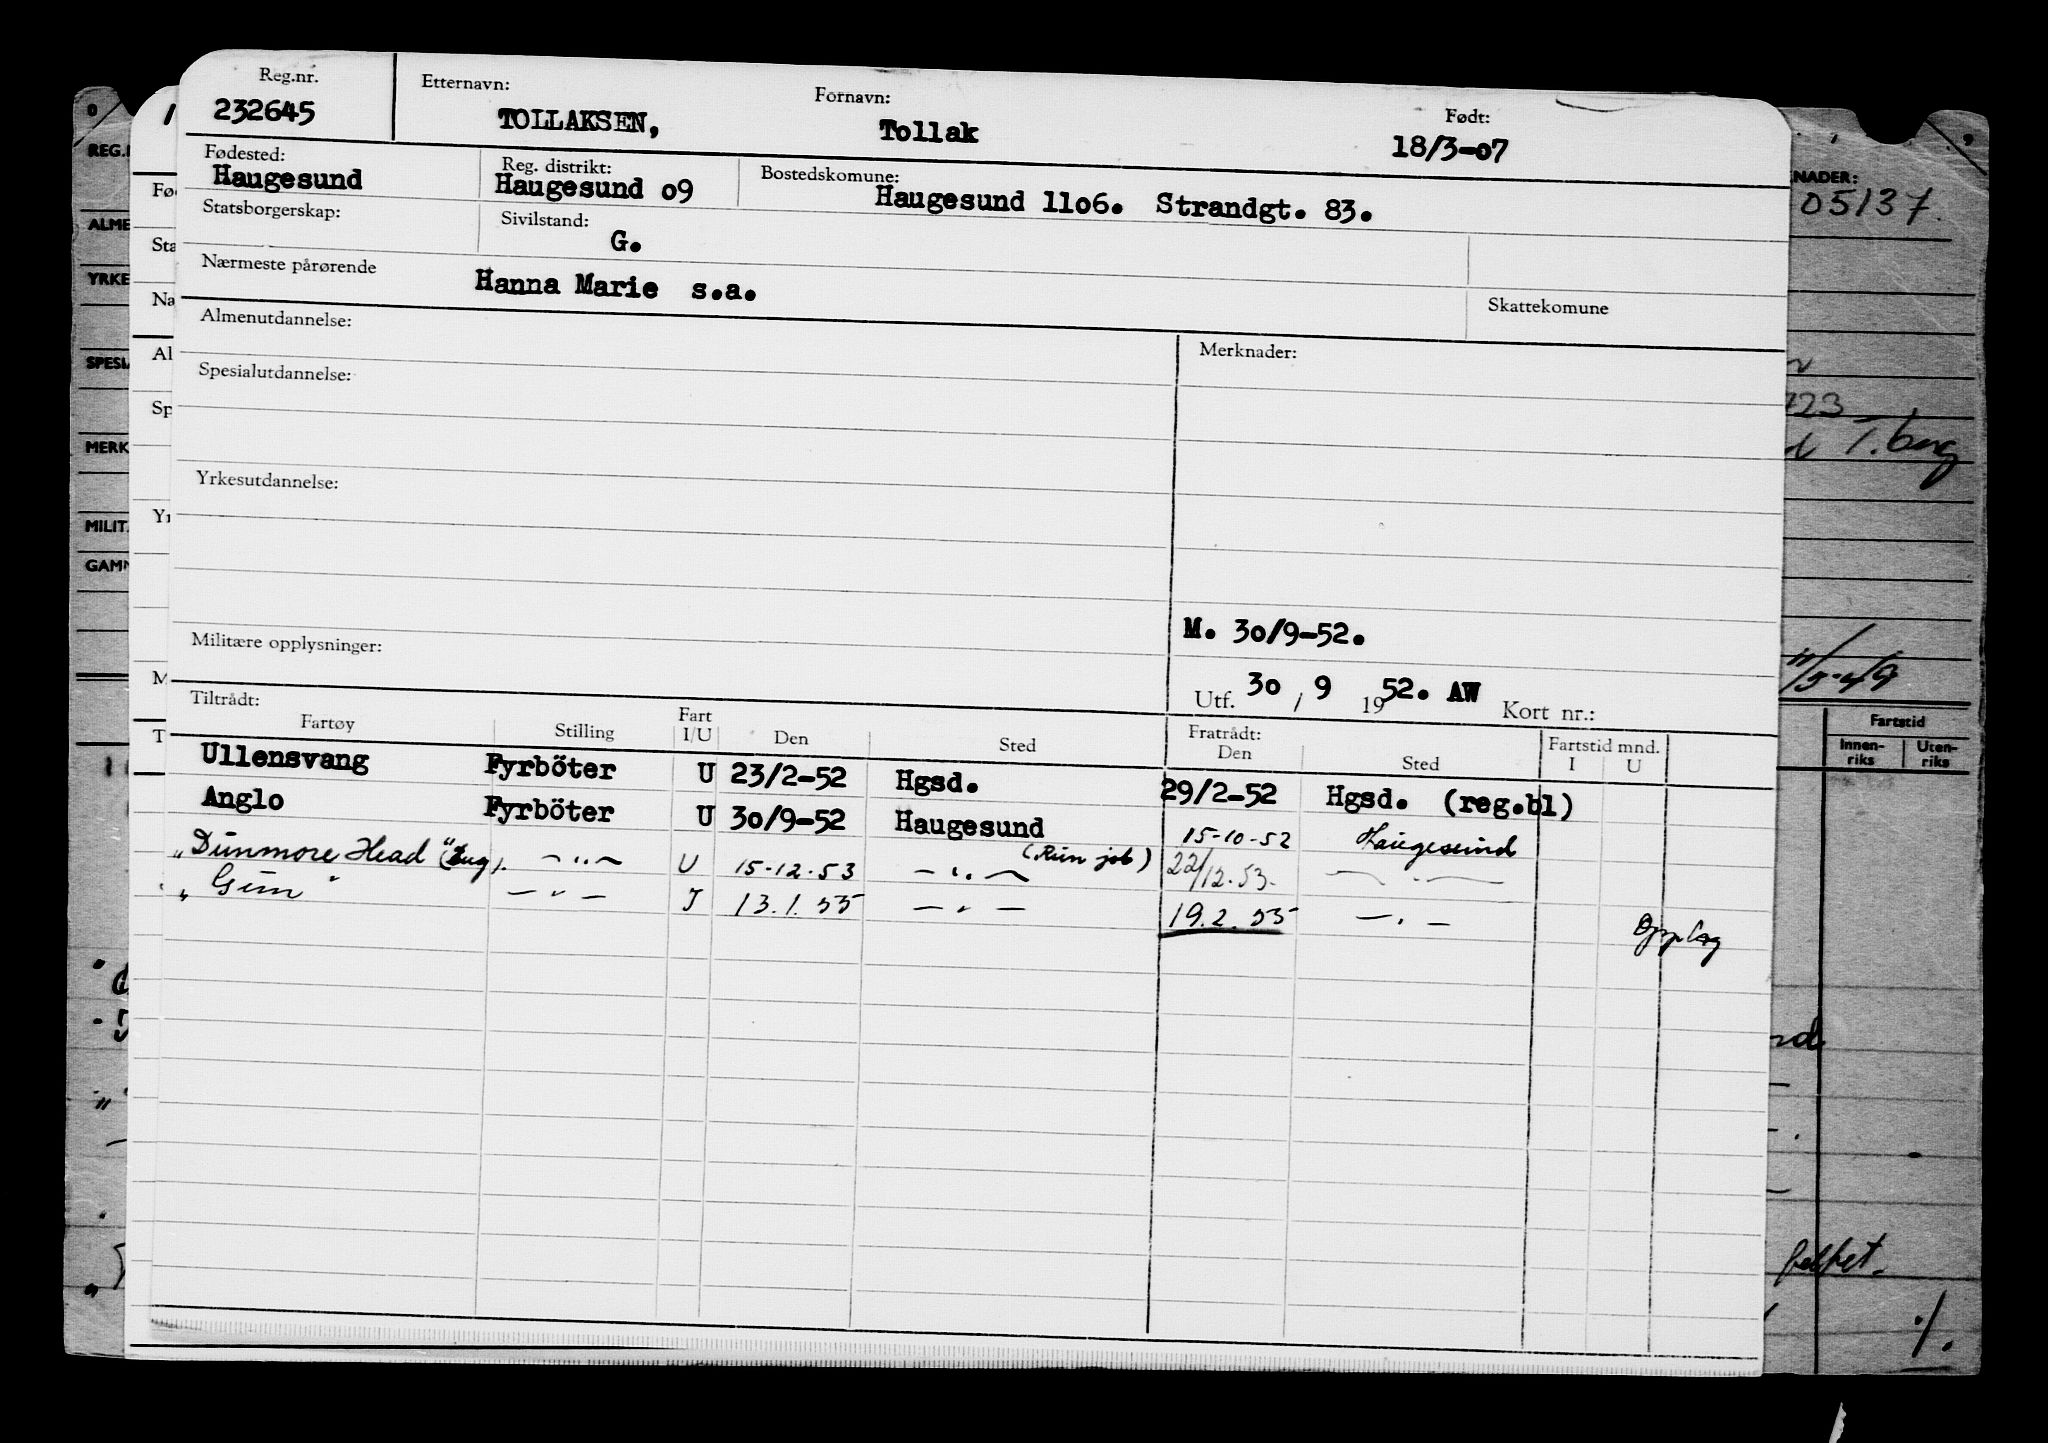 Reg.nr. Etternavn: Fornavn: Født:
232645 TOLLAKSEN, Tollak 18/3-07
Fødested: Reg. distrikt: Bostedskomune:
Haugesund Haugesund o9 Haugesund 11o6. Strandgt. 83.
Statsborgerskap: Sivilstand:
G.
Nærmeste pårørende Hanna Marie s.a. Skattekomune
Almenutdannelse: Merknader:
Spesialutdannelse:
Yrkesutdannelse:
M. 3o/9-52.
Militære opplysninger:
Utf. 3o / 9 19 52. AW Kort nr.:
Tiltrådt: Fratrådt:
Fartøy Stilling Fart I/U Den Sted Den Sted Fartstid mnd. I U
Ullensvang Fyrböter U 23/2-52 Hgsd. 29/2-52 Hgsd. (reg.bl)
Anglo Fyrböter U 3o/9-52 Haugesund 15-10-52 Haugesund
„Dunmore Head" (Eng). — „ — U 15-12-53 — „ — (Run job) 22/12-53. — „ —
„Gun" — „ — I 13.1.55 — „ — 19.2.55 — „ — Opplag
REG.
ALME
YRKE
SPESIA
MERK
MILIT.
GAMM
NADER:
05137.
T. berg
11/5-49
Fartstid
Innen-riks Uten-riks